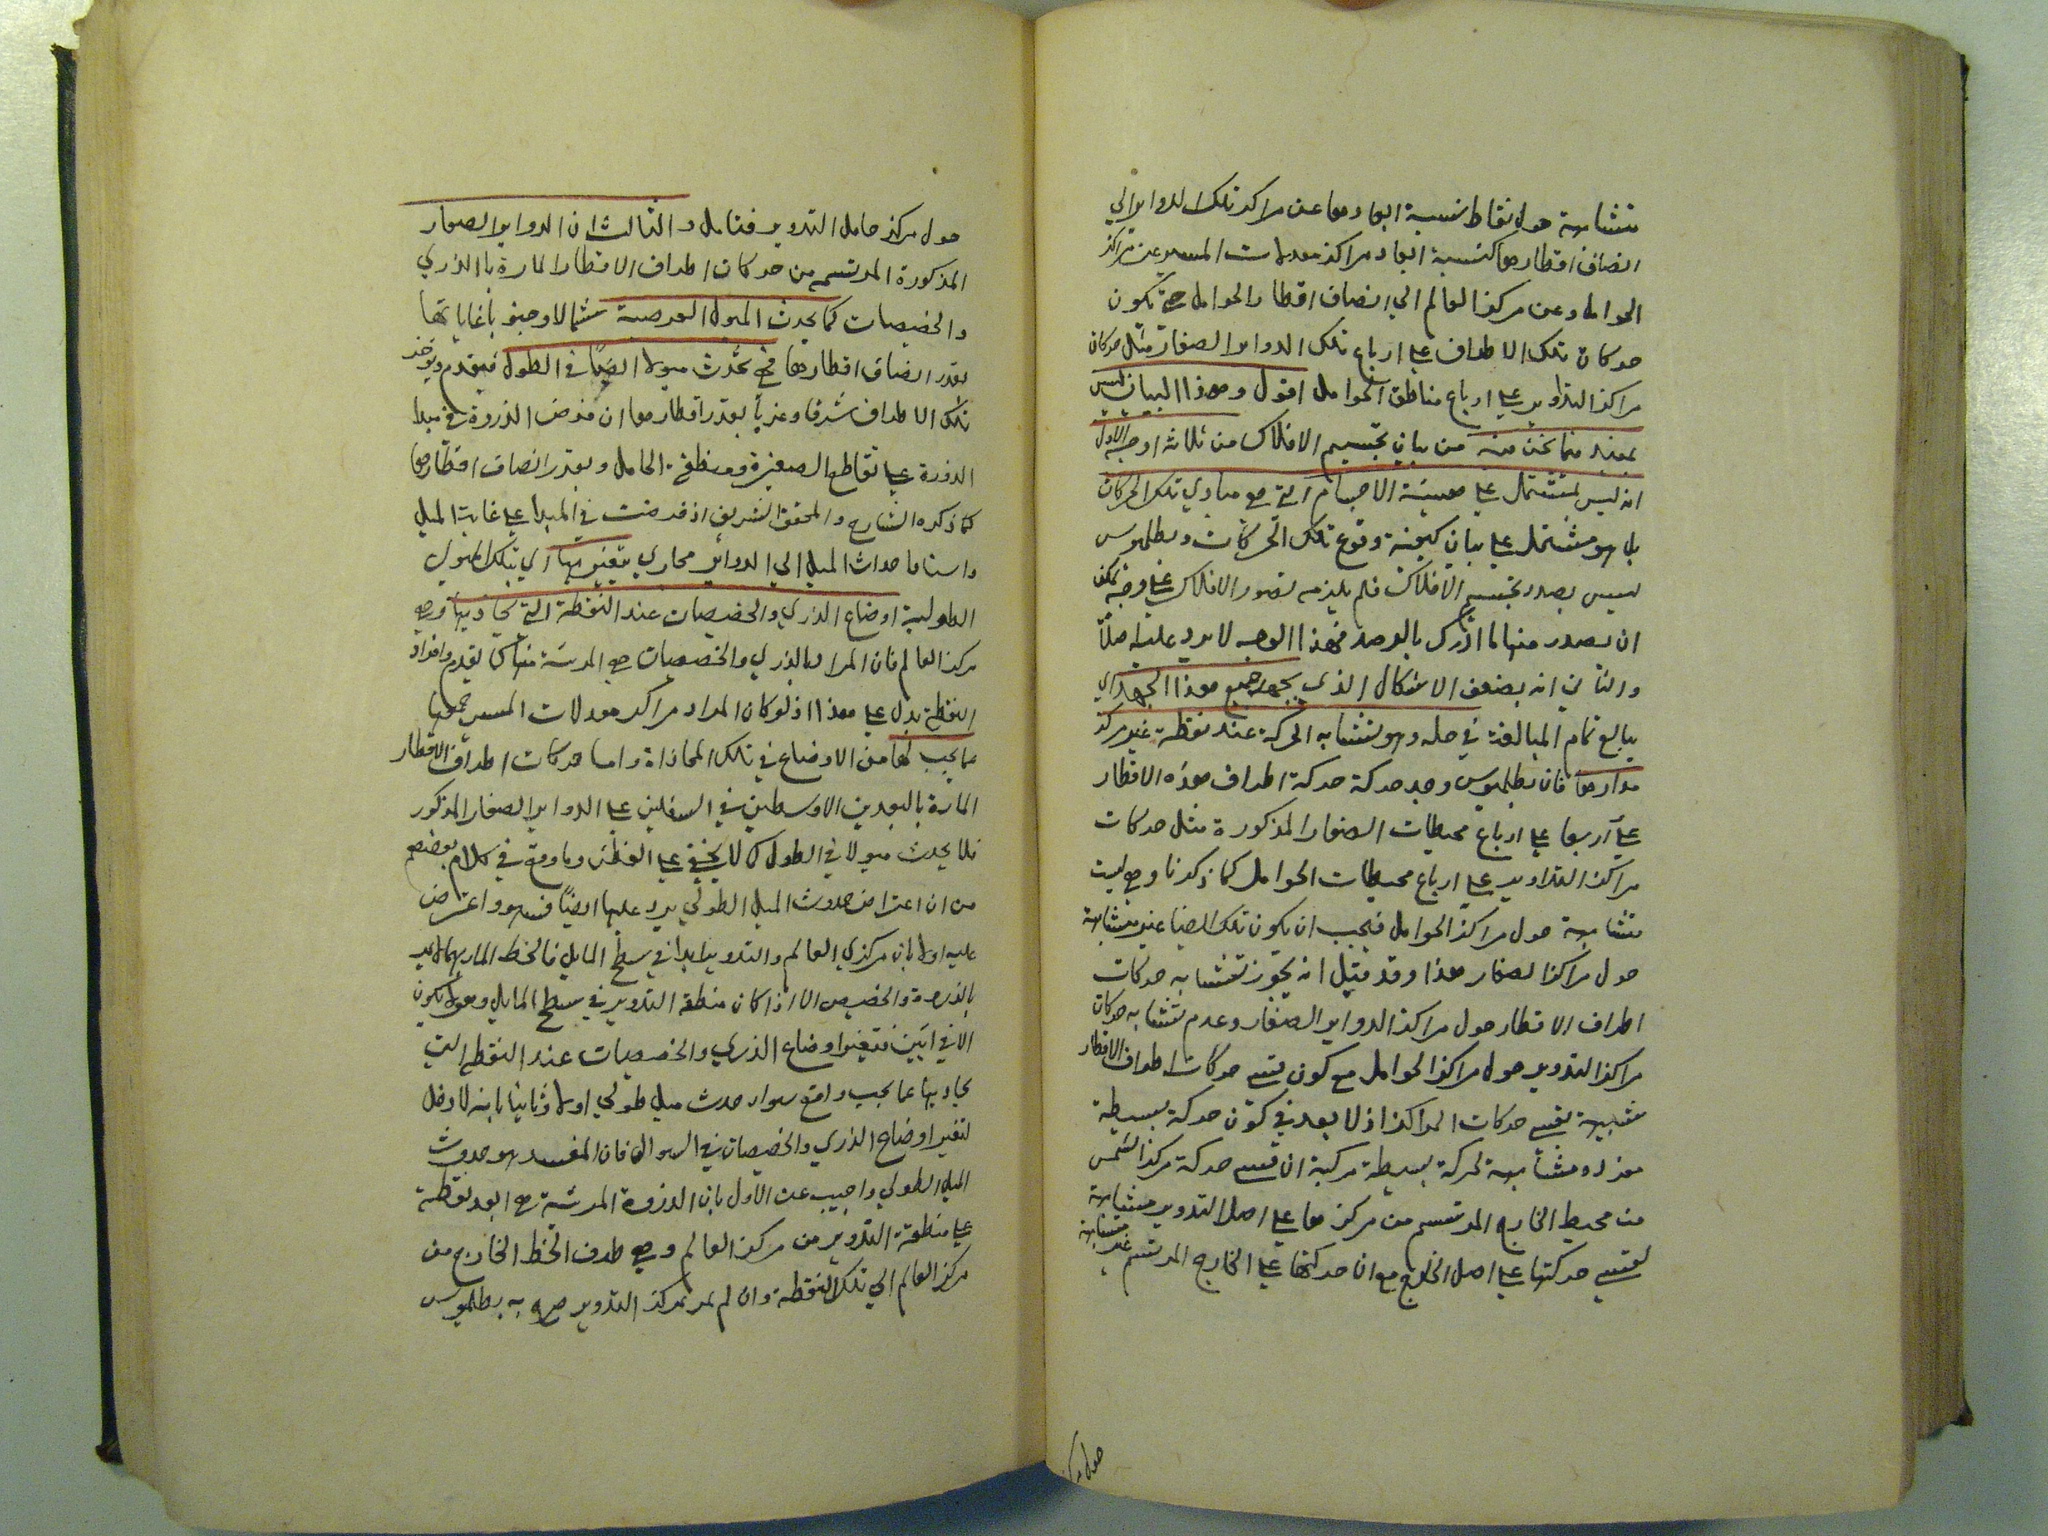 متشابهة حول نقاط نسبة ابعادها عن مراكز تلك الدواير الي
انصاف اقطارها كنسبة ابعاد مراكز معدلات المسير عن مراكز
الحوامل وعن مركز العالم الي انصاف اقطار الحوامل حتي تكون
حركات تلك الاطراف علي ارباع تلك الدواير الصغار مثل حركات
مراكز التداوير علي ارباع مناطق الحوامل اقول وهذا البيان ليس
بمفيد فيما نحن فيه من بيان تجسيم الافلاك من ثلاثة اوجه الاول
انه ليس بمشتمل علي هيئة الاجسام التي هي مبادي تلك الحركات
بل هو مشتمل علي بيان كيفية وقوع تلك الحركات وبطلميوس
ليس بصدد تجسيم الافلاك فلم يلزمه تصور الافلاك علي وجه يمكن
ان يصدر منها ما ادرك بالرصد فهذا الوجه لا يرد عليه اصلاً
والثاني انه يضعف الاشكال الذي يجهد جميع هذا الجهد اي
يبالغ تمام المبالغة في حله وهو تشابه الحركة عند نقطة غير مركز
مدارها فان بطلميوس وجد حركة حركة اطراف هذه الاقطار
علي ارباع محيطات الصغار المذكورة مثل حركات
مراكز التداوير علي ارباع محيطات الحوامل كما ذكرنا وهي ليست
متشابهة حول مراكز الحوامل فيجب ان يكون تلك ايضا غير متشابهة
حول مراكز الصغار هذا وقد قيل انه يجوز تشابه حركات
اطراف الاقطار حول مراكز الدواير الصغار وعدم تشابه حركات
مراكز التدوير حول مراكز الحوامل مع كون قسي حركات اطراف الاقطار
شبيهة بقسي حركات المراكز اذ لا بعد في كون حركة بسيطة
مفردة مشابهة لحركة بسيطة مركبة ان قسي حركة مركز الشمس
من محيط الخارج المرتسم من مركزها علي اصل التدوير متشابهة
لقسي حركتها علي اصل الخارج مع ان حركتها علي الخارج المرتسم غير متشابهة
حول مركز
حول مركز حامل التدوير فتامل والثالث ان الدواير الصغار
المذكورة المرتسمة من حركات اطراف الاقطار المارة بالذري
والحضيضات كما يحدث الميول العرضية شمالا وجنوبا غاياتها
بقدر انصاف اقطارها فهي تحدث ميولا ايضاً في الطول فيتقدم ويتاخر
تلك الاطراف شرقا وغرباً بقدر اقطارها ان فرض الذروة في مبدا
الدورة علي تقاطع الصغيرة ومنطقة الحامل وبقدر انصاف اقطارها
كما ذكره الشارح والمحقق الشريف اذ فرضت في المبدا علي غاية الميل
واسناد احداث الميل الي الدواير مجازي يتغير بها اي بتلك الميول
الطولية اوضاع الذري والحضيضات عند النقطة التي تحاذيها وهي
مركز العالم فان المراد بالذري والحضيضات هي المرئية منها كما تقدم وافراد
النقطة يدل علي هذا اذ لو كان المراد مراكز معدلات المسير جمعها
عما يجب لها من الاوضاع في تلك المحاذاة واما حركات اطراف الاقطار
المارة بالبعدين الاوسطين في السفليين علي الدواير الصغار المذكور
فلا يحدث ميولا في الطول كما لا يخفي علي الفطن وما وقع في كلام بعضهم
من ان اعتراض حدوث الميل الطولي يرد عليها ايضاً فسهو واعترض
عليه اولا بان مركزي العالم والتدوير ابدا في سطح المايل فالخط المار بهما لا يمر
بالذروة والحضيض الا اذا كان منطقة التدوير في سطح المايل وهو لا يكون
الا في آنين فتغير اوضاع الذري والحضيضات عند النقطة التي
تحاذيها عما يجب واقع سواء حدث ميل طولي اولا وثانيا بانه لا دخل
لتغير اوضاع الذري والحضيضات في السوال فان المفسد هو حدوث
الميل الطولي واجيب عن الاول بان الذروة المرئية هي ابعد نقطة
علي منطقة التدوير من مركز العالم وهي طرف الخط الخارج من
مركز العالم الي تلك النقطة وان لم يمر بمركز التدوير صرح به بطلميوس